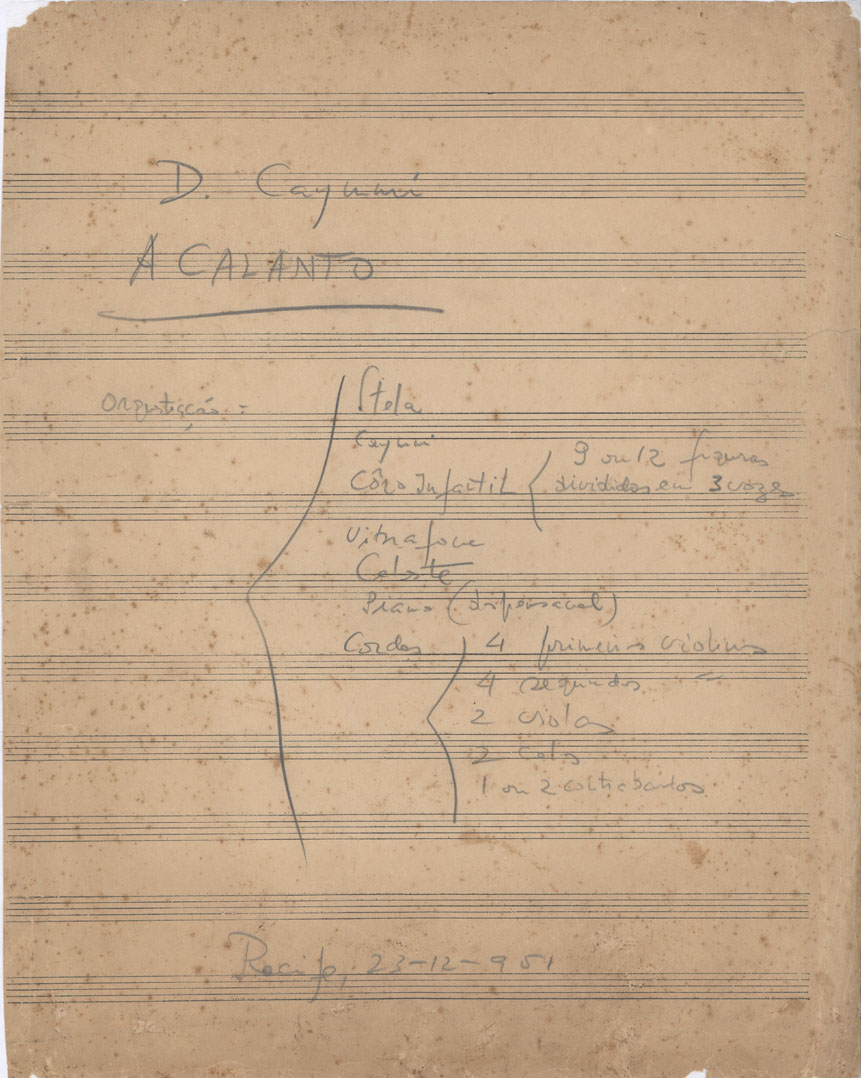 D. Caymmi
ACALANTO
Orquestração :
Stela
Caymmi
Côro Infantil { 9 ou 12 figuras
divididas em 3 vozes
Vibrafone
Celeste
Piano (dispensavel)
Cordas { 4 primeiros violinos
4 segundos "
2 violas
2 celos
1 ou 2 contrabaixos
Recife, 23-12-951